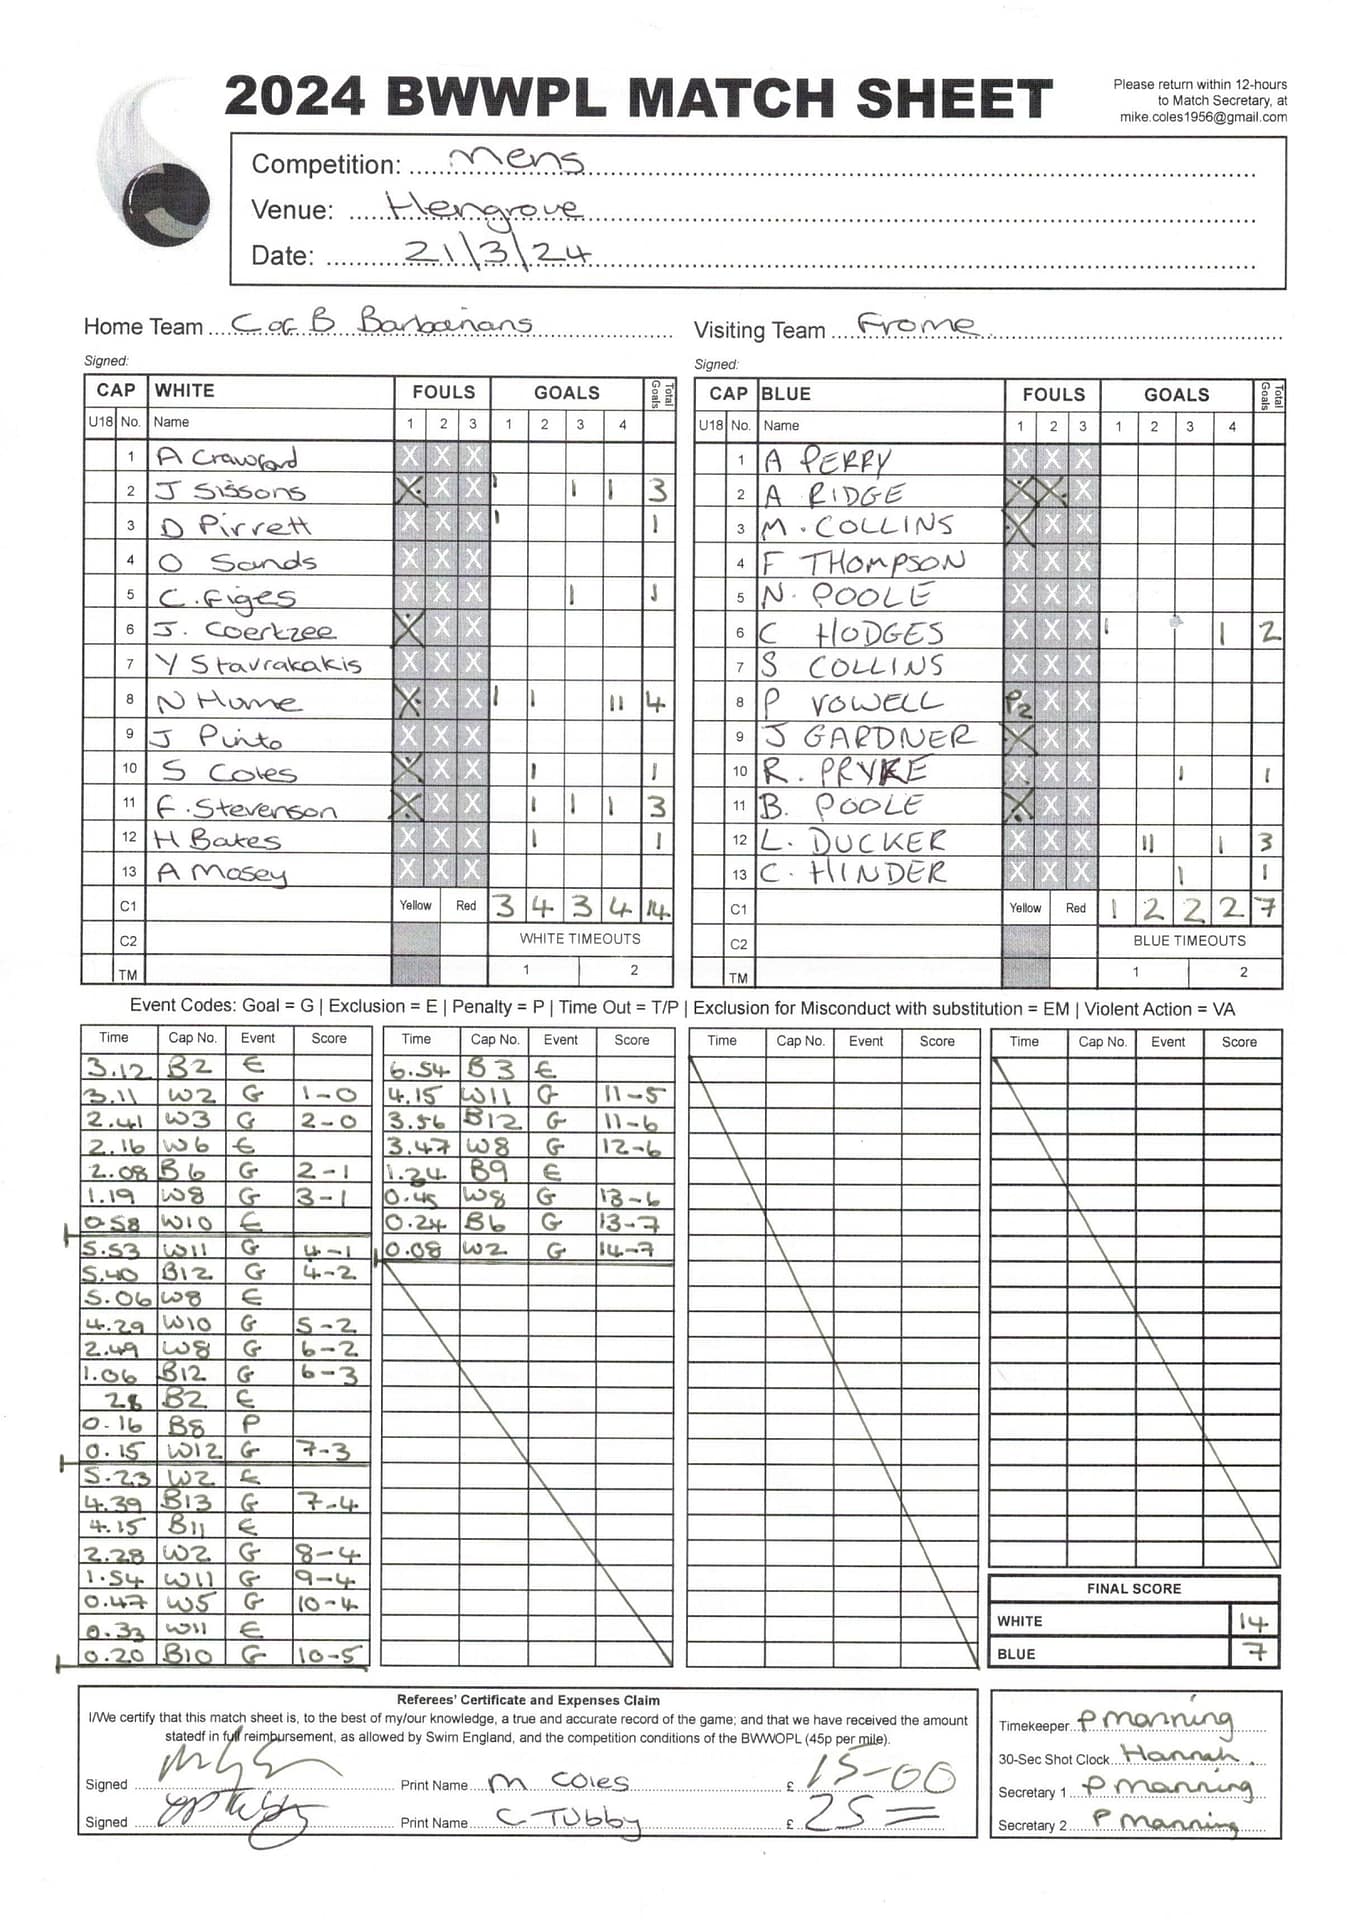 2024 BWWPL MATCH SHEET
Please return within 12-hours
to Match Secretary, at
mike.coles1956@gmail.com
Competition: Mens
Venue: Hengrove
Date: 21/3/24
Home Team C of B Barbarians
Visiting Team Frome
Signed:
Signed:
CAP WHITE FOULS GOALS Total Goals
U18 No. Name 1 2 3 1 2 3 4
1 A Crawford X X X
2 J Sissons X X X 1 1 1 3
3 D Pirrett X X X 1 1
4 O Sands X X X
5 C. Figes X X X 1 1
6 J. Coertzee X X X
7 Y Stavrakakis X X X
8 N Hume X X X 1 1 11 4
9 J Pinto X X X
10 S Coles X X X 1 1
11 F. Stevenson X X X 1 1 1 3
12 H Bates X X X 1 1
13 A Mosey X X X
C1 Yellow Red 3 4 3 4 14
C2 WHITE TIMEOUTS
TM 1 2
CAP BLUE FOULS GOALS Total Goals
U18 No. Name 1 2 3 1 2 3 4
1 A PERRY X X X
2 A RIDGE X X X
3 M. COLLINS X X X
4 F THOMPSON X X X
5 N. POOLE X X X
6 C HODGES X X X 1 1 2
7 S COLLINS X X X
8 P VOWELL P2 X X
9 J GARDNER X X X
10 R. PRYKE X X X 1 1
11 B. POOLE X X X
12 L. DUCKER X X X 11 1 3
13 C. HINDER X X X 1 1
C1 Yellow Red 1 2 2 2 7
C2 BLUE TIMEOUTS
TM 1 2
Event Codes: Goal = G | Exclusion = E | Penalty = P | Time Out = T/P | Exclusion for Misconduct with substitution = EM | Violent Action = VA
Time Cap No. Event Score
3.12 B2 E
3.11 W2 G 1-0
2.41 W3 G 2-0
2.16 W6 E
2.08 B6 G 2-1
1.19 W8 G 3-1
0.58 W10 E
5.53 W11 G 4-1
5.40 B12 G 4-2
5.06 W8 E
4.29 W10 G 5-2
2.49 W8 G 6-2
1.06 B12 G 6-3
28 B2 E
0.16 B8 P
0.15 W12 G 7-3
5.23 W2 E
4.39 B13 G 7-4
4.15 B11 E
2.28 W2 G 8-4
1.54 W11 G 9-4
0.47 W5 G 10-4
0.33 W11 E
0.20 B10 G 10-5
Time Cap No. Event Score
6.54 B3 E
4.15 W11 G 11-5
3.56 B12 G 11-6
3.47 W8 G 12-6
1.24 B9 E
0.45 W8 G 13-6
0.24 B6 G 13-7
0.08 W2 G 14-7
Time Cap No. Event Score
Time Cap No. Event Score
FINAL SCORE
WHITE 14
BLUE 7
Referees' Certificate and Expenses Claim
I/We certify that this match sheet is, to the best of my/our knowledge, a true and accurate record of the game; and that we have received the amount
statedf in full reimbursement, as allowed by Swim England, and the competition conditions of the BWWOPL (45p per mile).
Signed Print Name M Coles £ 15-00
Signed Print Name C Tubby £ 25=
Timekeeper P Manning
30-Sec Shot Clock Hannah.
Secretary 1 P Manning
Secretary 2 P Manning